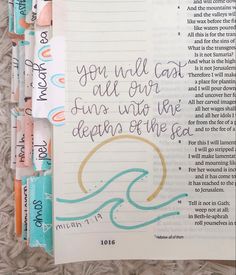 you will cast
all our
sins into the
depths of the sea
micah 7:19
1016
micah
joel
amos
And the mountains w
and the valleys will
like wax before the
like waters poured
All this is for the tran
and for the sins of
What is the transgres
Is it not Samaria?
And what is the high
Is it not Jerusalem?
Therefore I will make
a place for plantin
and I will pour dow
and uncover her fo
All her carved images
all her wages shall
and all her idols I
for from the fee of a p
and to the fee of a p
For this I will lament
I will go stripped
I will make lamentat
and mourning lik
For her wound is incu
and it has come to
it has reached to the
to Jerusalem.
Tell it not in Gath;
weep not at all;
in Beth-le-aphrah
roll yourselves in